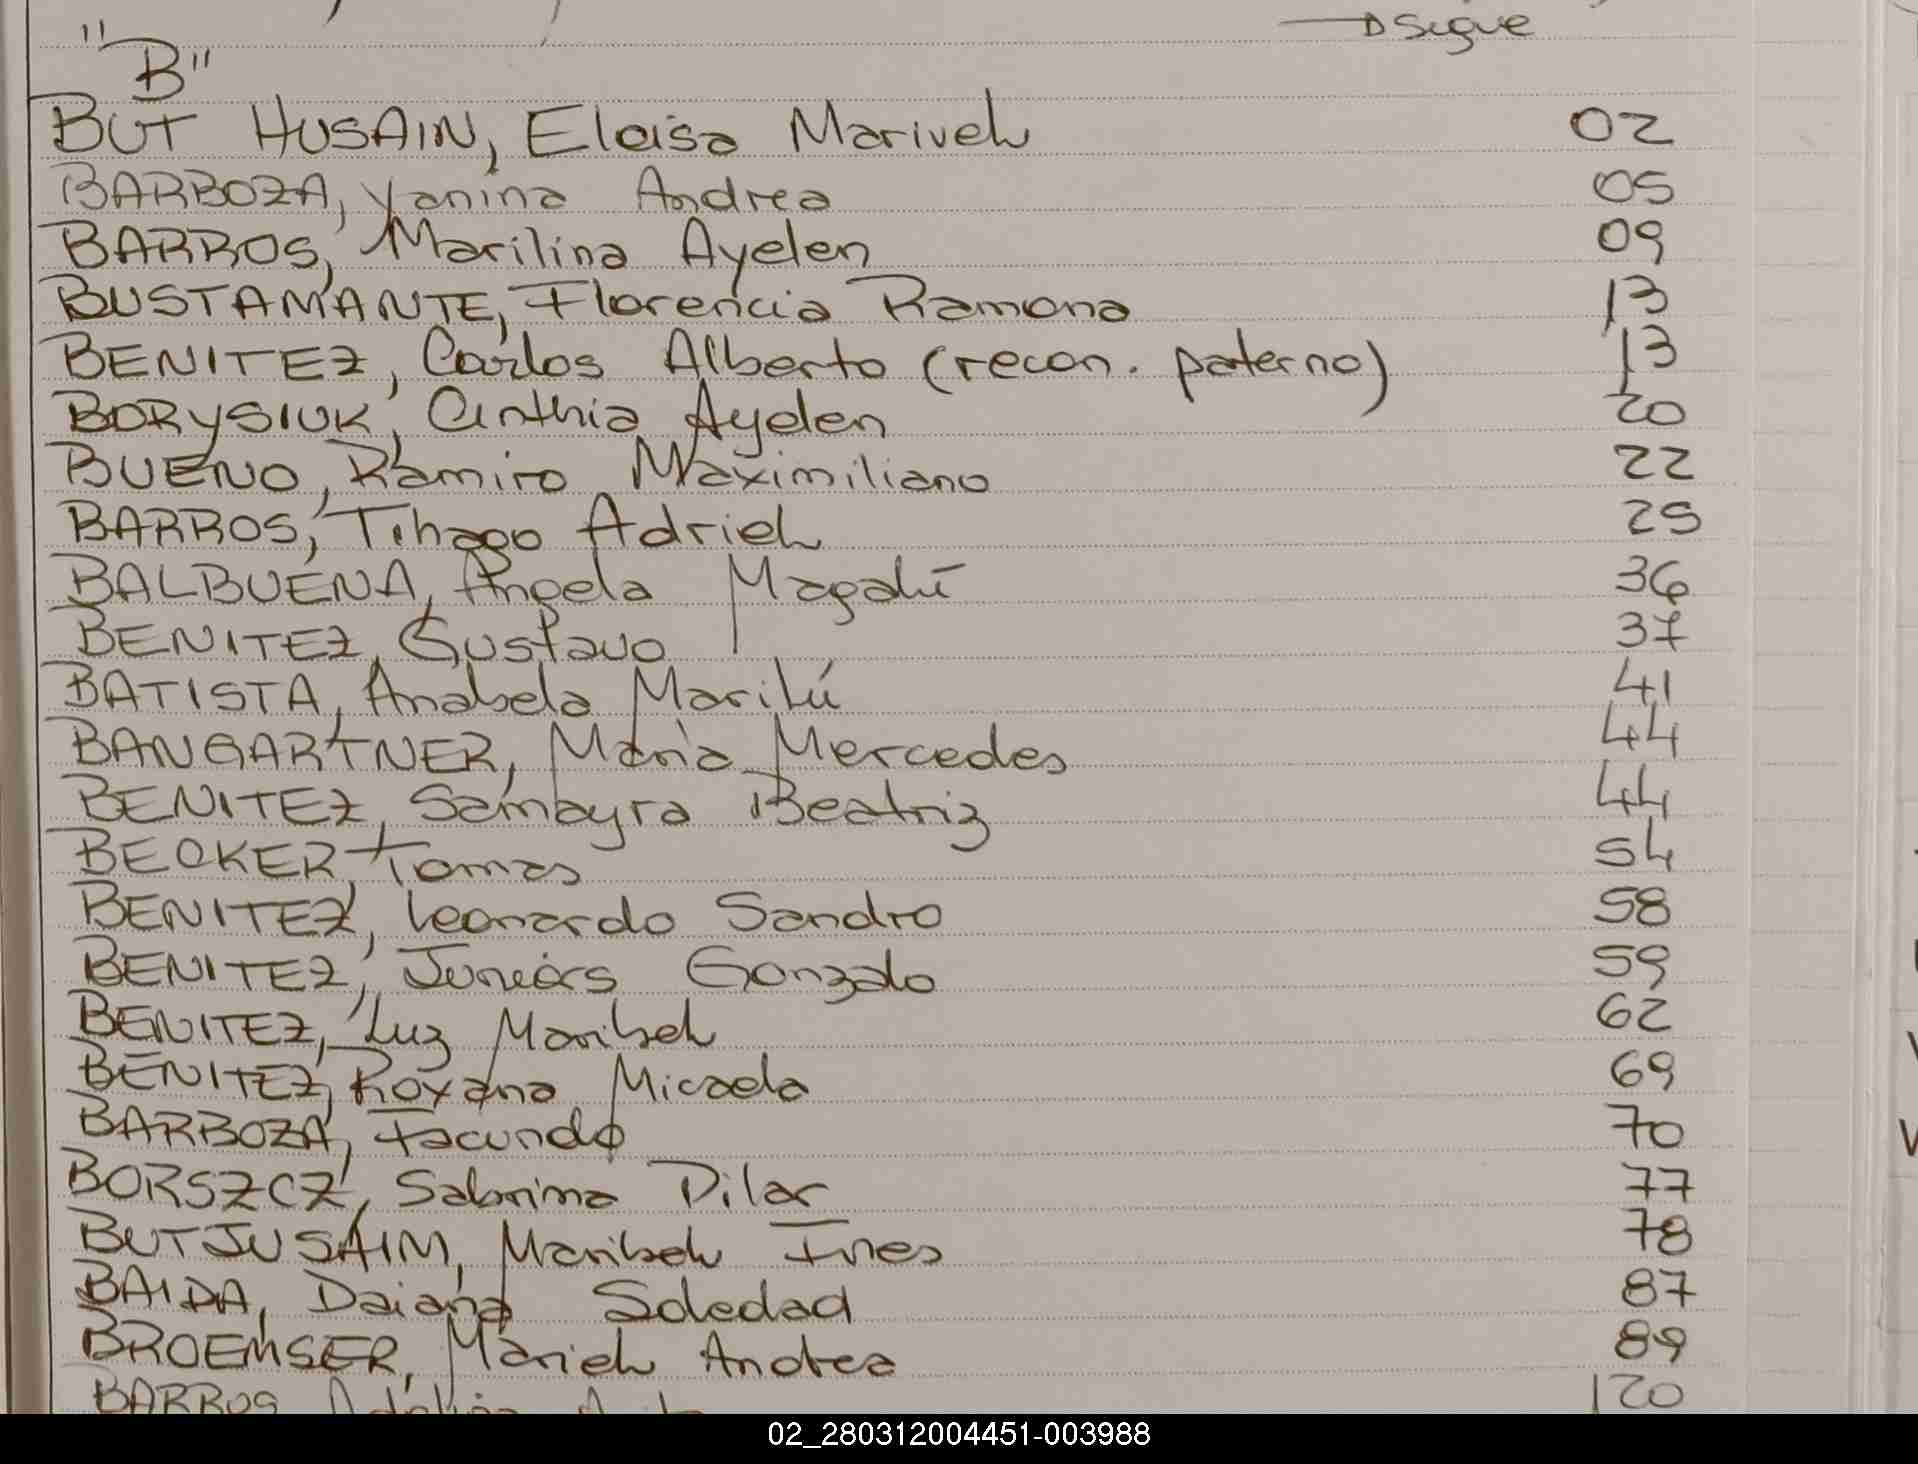 → Sigue
"B"
BUT HUSAIN, Eloisa Marivel 02
BARBOZA, Yanina Andrea 05
BARROS, Marilina Ayelen 09
BUSTAMANTE, Florencia Ramona 13
BENITEZ, Carlos Alberto (recon. paterno) 13
BORYSIUK, Cinthia Ayelen 20
BUENO, Ramiro Maximiliano 22
BARROS, Tihago Adriel 25
BALBUENA, Angela Magalí 36
BENITEZ, Gustavo 37
BATISTA, Anabela Marilú 41
BANGARTNER, Maria Mercedes 44
BENITEZ, Samayra Beatriz 44
BECKER, Tomas 54
BENITEZ, Leonardo Sandro 58
BENITEZ, Gonzalo 59
BENITEZ, Luz Maribel 62
BENITEZ, Roxana Micaela 69
BARBOZA, Facundo 70
BORSZCZ, Sabrina Pilar 77
BUTJUSAIM, Maribel Ines 78
BAIDA, Daiana Soledad 87
BROEMSER, Mariel Andrea 89
BARROS 120
02_280312004451-003988